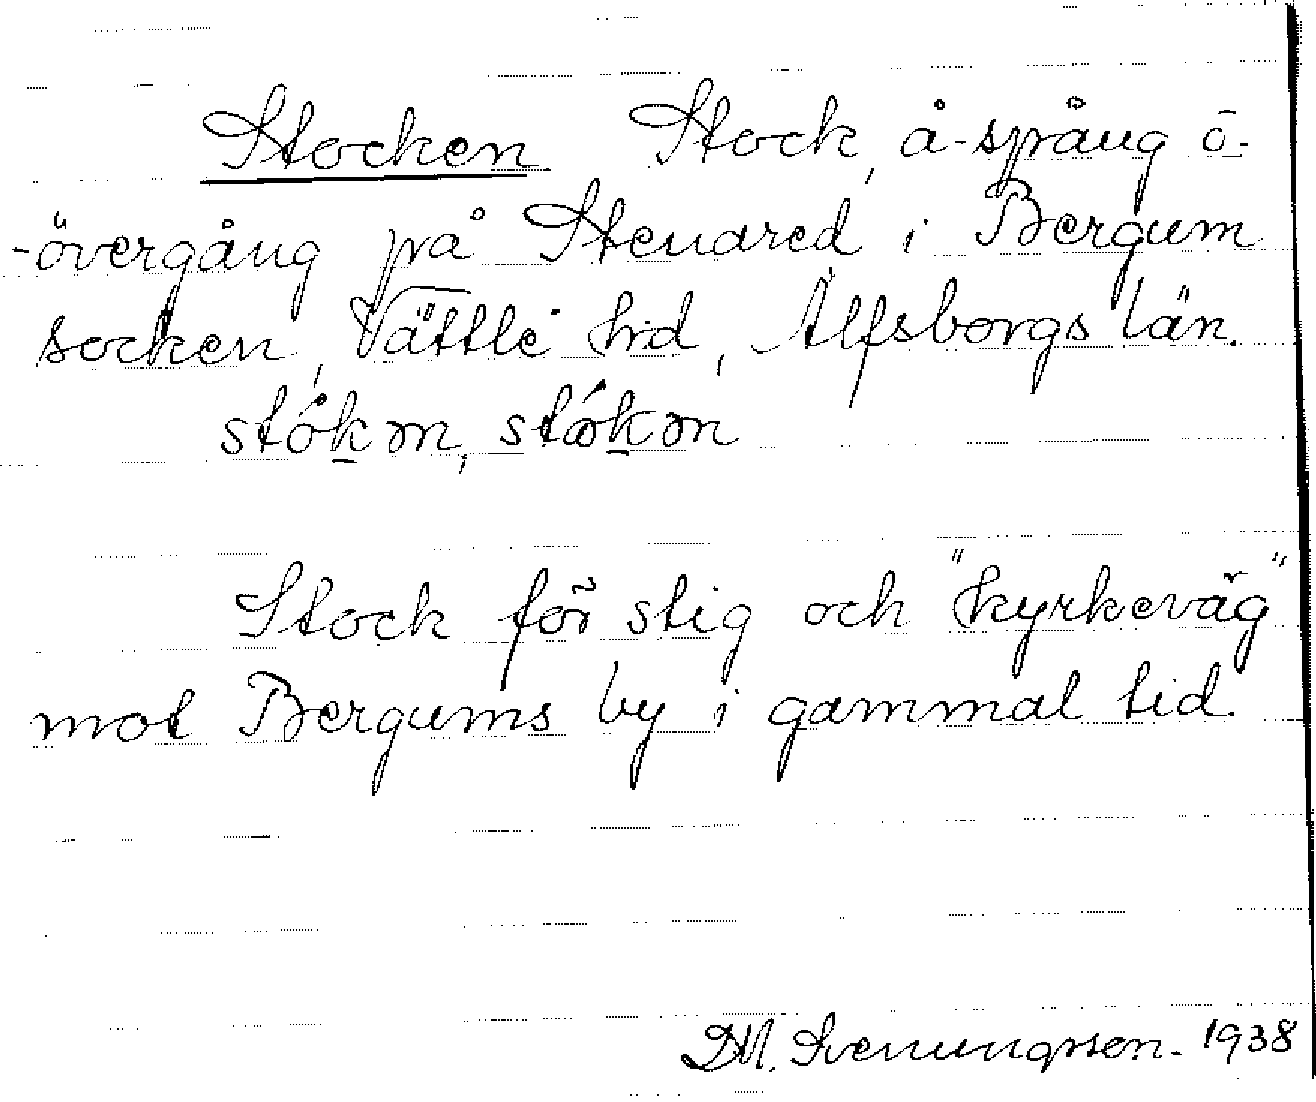 Stocken Stock, å-språng o-
-övergång på Stenared i Bergum
socken, Vättle hrd, Älfsborgs län.
stókon, stǻkon
Stock för stig och "kyrkeväg"
mot Bergums by i gammal tid.
DM. Svenungsson. 1938